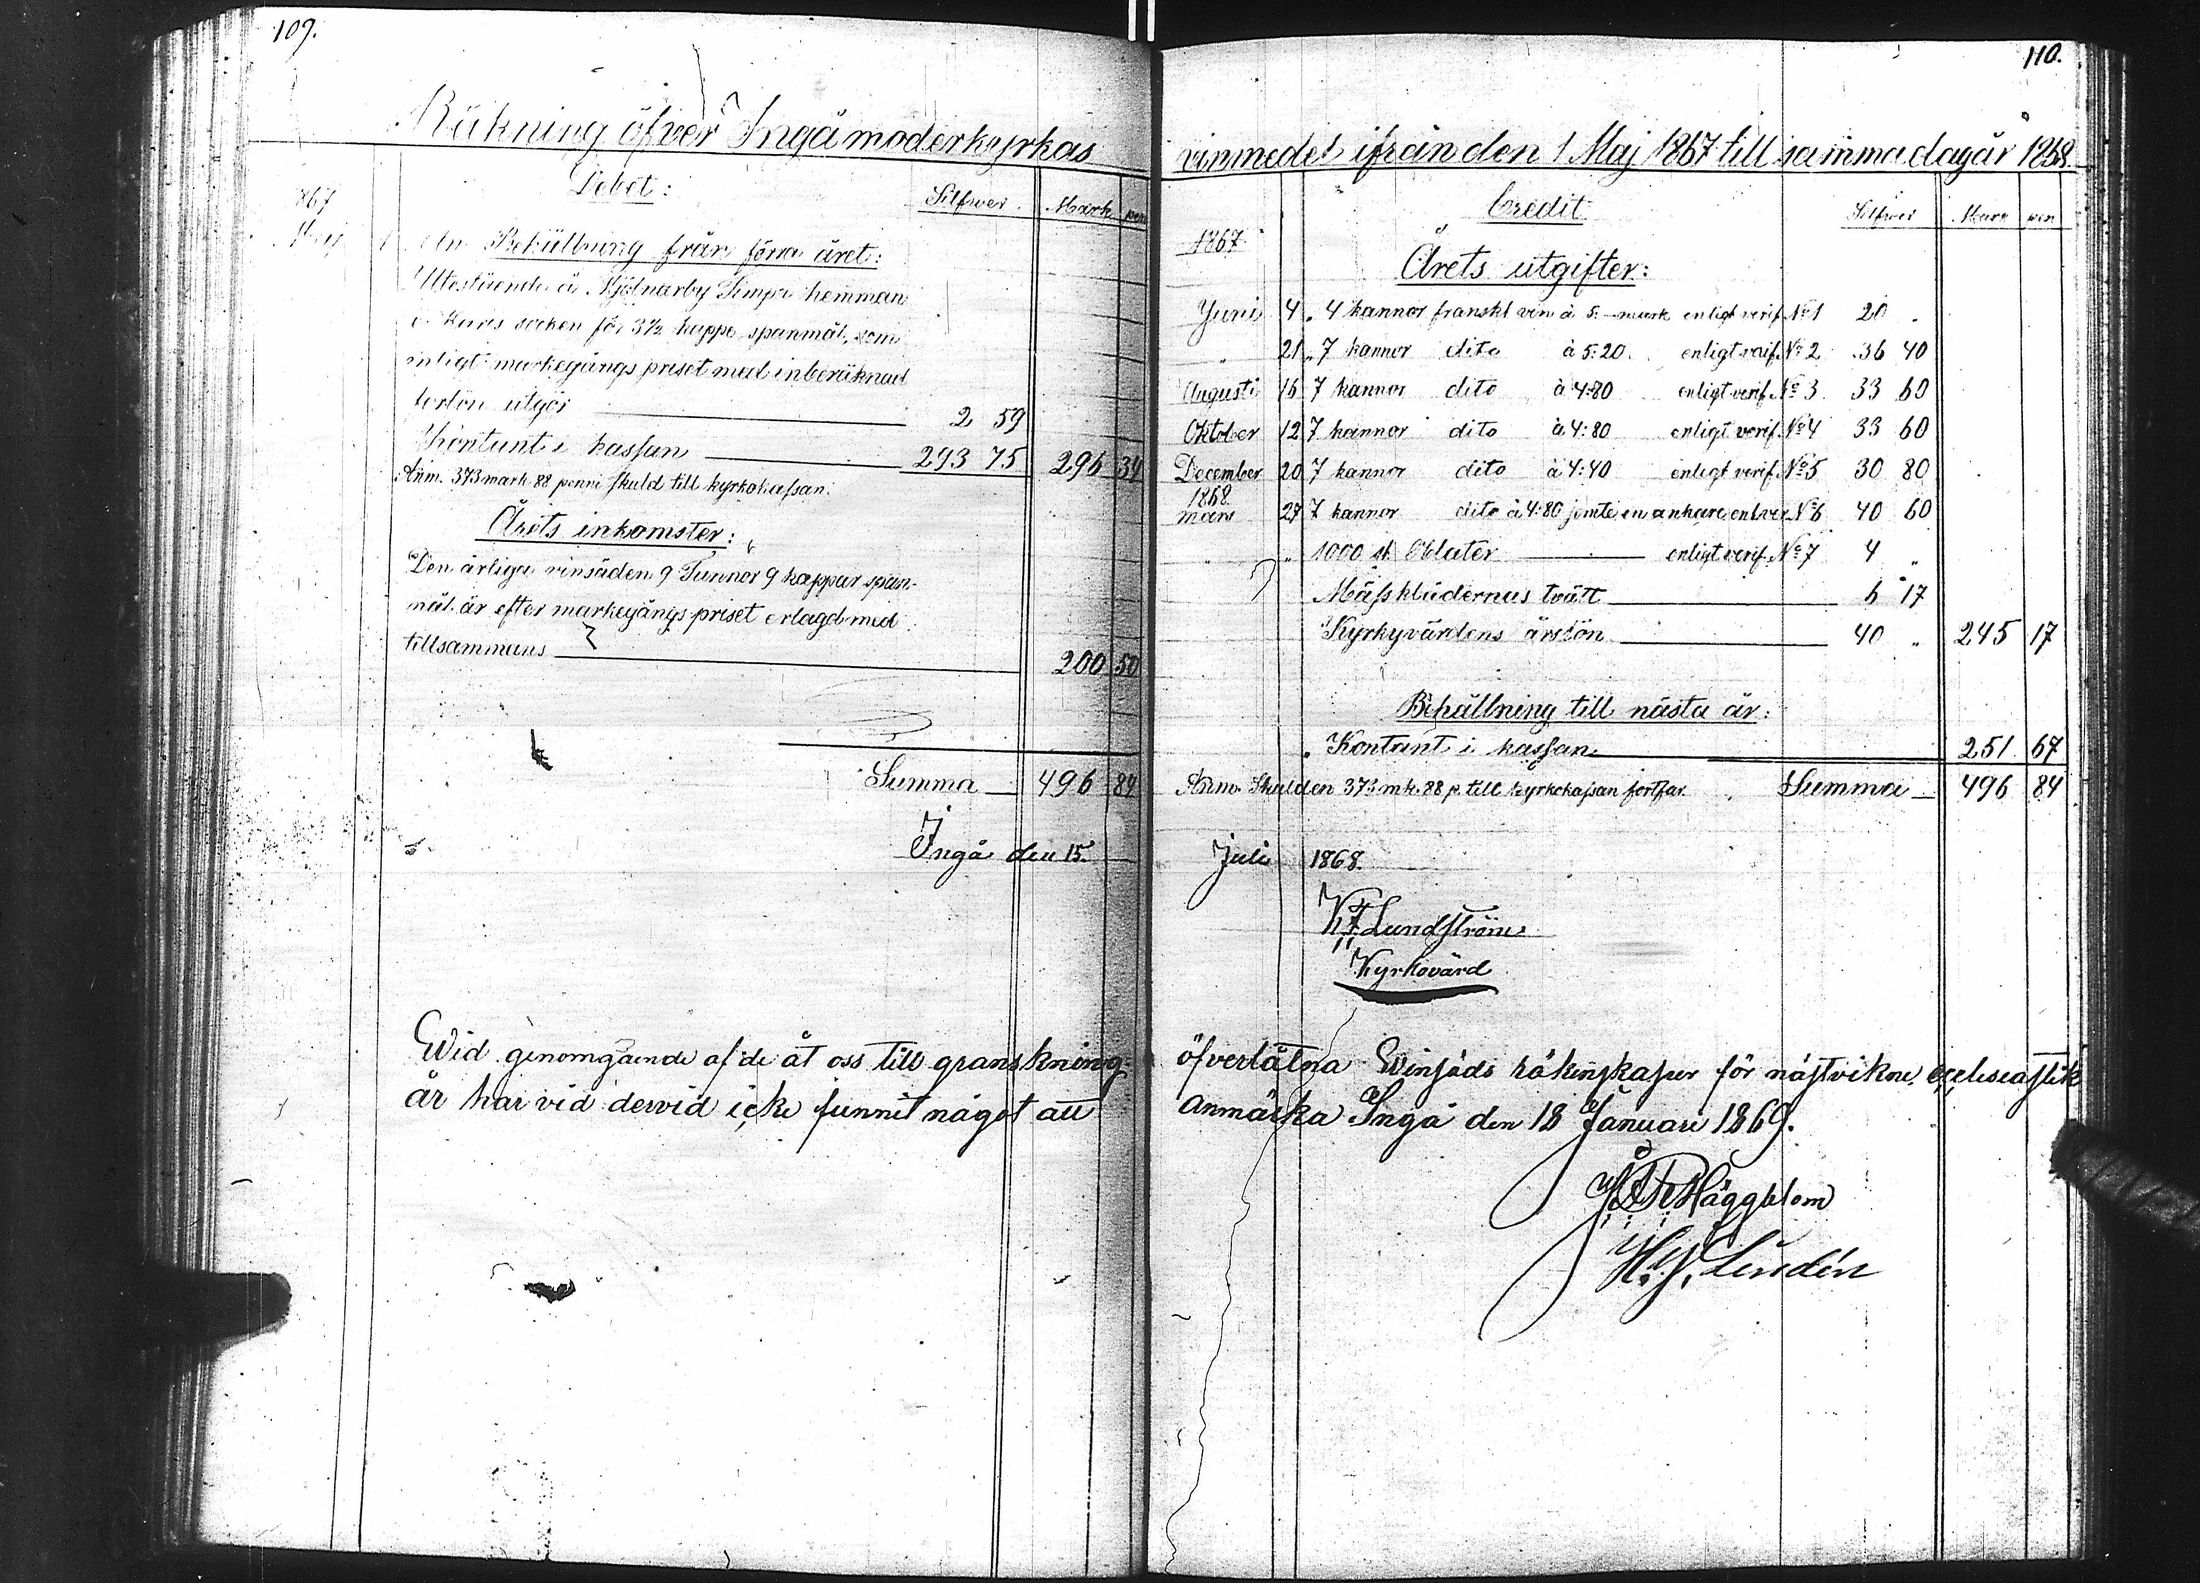 109.
Räkning öfver Ingå moderkyrkas
Debet:
Silfwer Mark pen
1867
Maj 1 An Behållning från förra året:
Utestående å Mjölnarby Simps hemman
i Karis socken för 3½ kappe spanmål, som
enligt markegångs priset med inberäknad
forlön utgör 2 59
Kontant i kassan 293 75 296 34
Anm. 373 mark 88 penni skuld till kyrkokassan.
Årets inkomster:
Den årliga vinsäden 9 Tunnor 9 kappar span-
mål är efter markegångs-priset erlagd med
tillsammans 200 50
Summa 496 84
Ingå den 15.
Wid genomgående af de åt oss till granskning
år har vid dervid icke funnit något att
110.
vinmedel ifrån den 1 Maj 1867 till samma dag år 1868.
Credit
Silfwer Mark pen
1867
Årets utgifter:
Juni 4 „ 4 kannor franskt vin à 5.- mark enligt verif. No 1 20 „
„ 21 „ 7 kannor dito à 5:20. enligt verif. No 2 36 40
Augusti 16 7 kannor dito à 4:80 enligt verif. No 3 33 60
Oktober 12 7 kannor dito à 4:80 enligt verif. No 4 33 60
December 20 7 kannor dito à 4:40 enligt verif. No 5 30 80
1868
mars 27 7 kannor dito à 4:80 jemte en ankare enl. ver. No 6 40 60
„ „ 1000 st. Oblater enligt verif. No 7 4 „
Mässklädernas tvätt 6 17
Kyrkyvärdens årslön 40 „ 245 17
Behållning till nästa år:
„ Kontant i kassan 251 67
Anm. Skulden 373 mk. 88 p. till kyrkokassan fortfar. Summa 496 84
Juli 1868.
K F Lundström
Kyrkovärd
öfverlåtna Winsäds räkingkaper för nästvikne ecclesiastik
anmärka Ingå den 18 Januari 1869.
Häggblom
H. J. Lindén